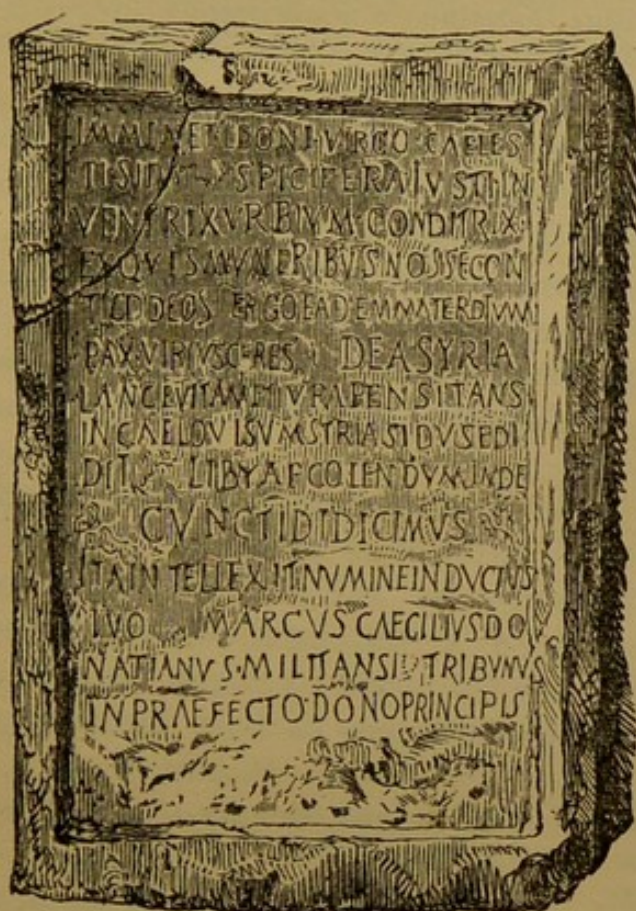 IMMINET LEONI·VIRGO·CAELES
TI·SITV SPICIFERA IVSTI·IN
VENTRIX VRBIVM·CONDITRIX·
EX QVIS MVNERIBVS NOSSE CON
TIGIT DEOS ERGO EADEM MATER DIVVM
PAX·VIRTVS·CERES DEA SYRIA
LANCE VITAM ET IVRA PENSITANS
IN CAELO VISVM SYRIA SIDVS EDI
DIT LIBYAE COLENDVM INDE
CVNCTI DIDICIMVS
ITA INTELLEXIT NVMINE INDVCTVS
TVO MARCVS CAECILIVS DO
NATIANVS·MILITANS TRIBVNVS
IN PRAEFECTO·DONO PRINCIPIS